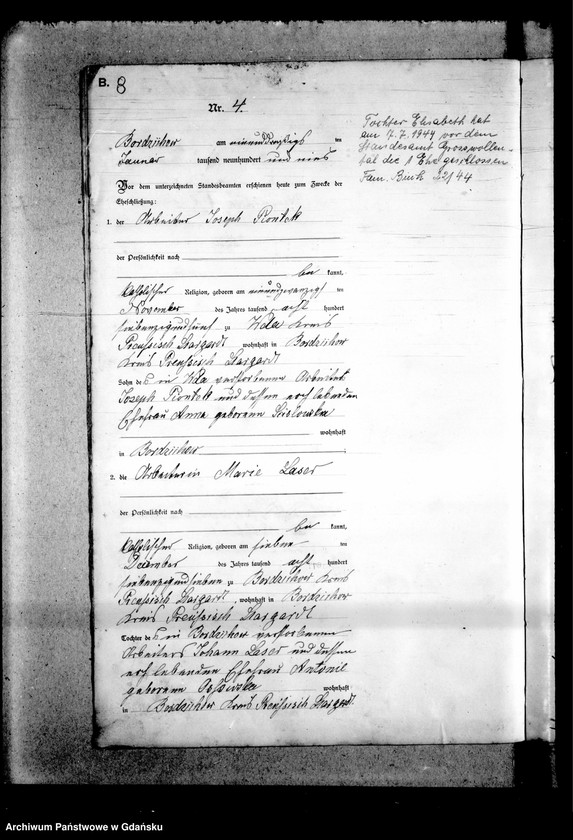 B. 8
Nr. 4.
Bordzichow am neunundzwanzigs ten
Januar tausend neunhundert und eins
Vor dem unterzeichneten Standesbeamten erschienen heute zum Zwecke der
Eheschließung:
1. der Arbeiter Joseph Piontek
der Persönlichkeit nach
be kannt,
katholischer Religion, geboren am neunundzwanzigs ten
November des Jahres tausend acht hundert
siebenzigundfünf zu Wda Kreis
Preußisch Stargardt, wohnhaft in Bordzichow
Kreis Preußisch Stargardt
Sohn des in Wda verstorbenen Arbeiters
Joseph Piontek und dessen noch lebenden
Ehefrau Anna geborenen
wohnhaft
in Bordzichow
2. die Arbeiterin Marie Laser
der Persönlichkeit nach
be kannt,
katholischer Religion, geboren am sieben ten
Dezember des Jahres tausend acht hundert
siebenzigundsieben zu Bordzichow Kreis
Preußisch Stargardt, wohnhaft in Bordzichow
Kreis Preußisch Stargardt
Tochter des in Bordzichow verstorbenen
Arbeiters Johann Laser und dessen
noch lebenden Ehefrau Antonie
geborene wohnhaft
in Bordzichow Kreis Preußisch Stargardt.
Tochter Elisabeth hat
am 7.7.1944 vor dem
Standesamt Grosswollen-
tal die 1 Ehe geschlossen
Fam. Buch 22/44
Archiwum Państwowe w Gdańsku